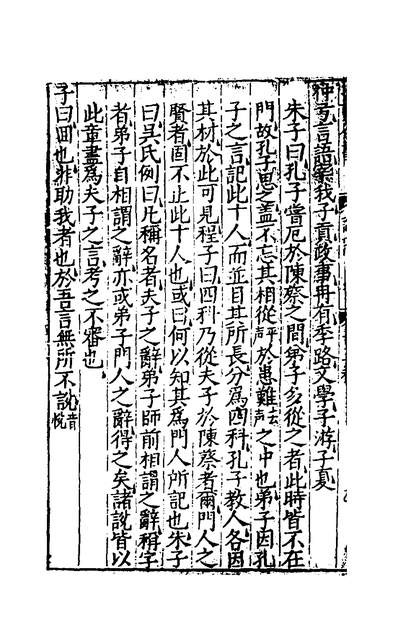 仲弓言語宰我子貢政事冉有季路文學子游子夏
朱子曰孔子嘗厄於陳蔡之間弟子多從之者此時皆不在
門故孔子思之盖不忘其相從平聲於患難去聲之中也弟子因孔
子之言記此十人而並目其所長分為四科孔子教人各因
其材於此可見程子曰四科乃從夫子於陳蔡者爾門人之
賢者固不止此十人也或曰何以知其為門人所記也朱子
曰吳氏例曰凡稱名者夫子之辭弟子師前相謂之辭稱字
者弟子自相謂之辭亦或弟子門人之辭得之矣諸說皆以
此章盡為夫子之言考之不審也
子曰回也非助我者也於吾言無所不說音悅